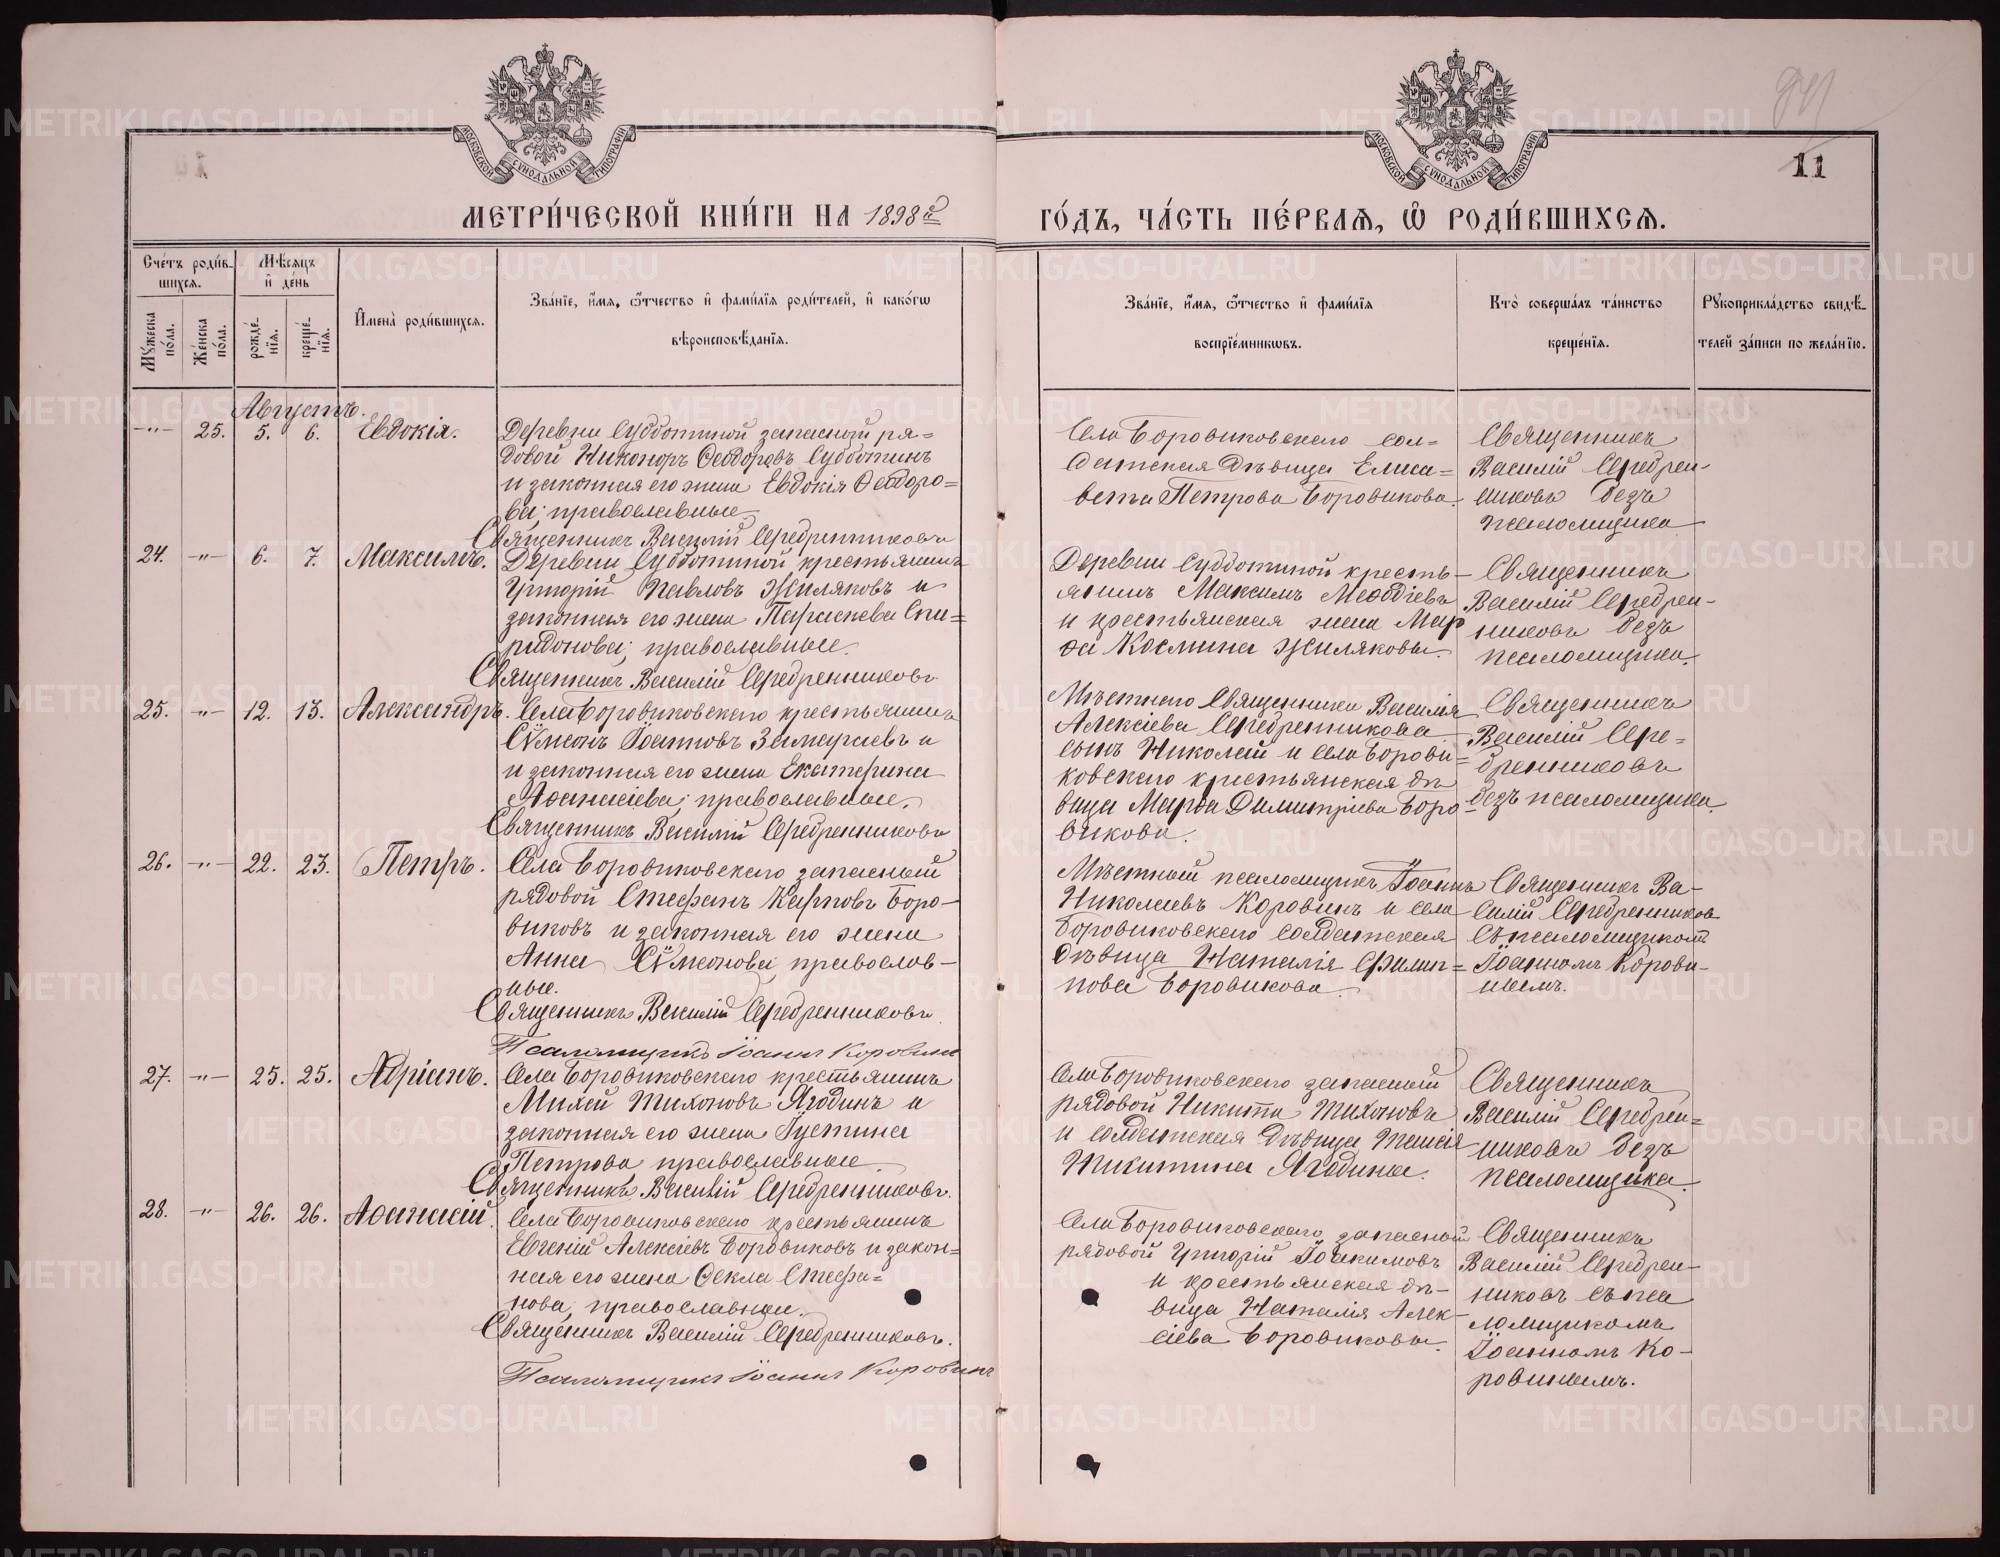 МОСКОВСКОЙ СѴНОДАЛЬНОЙ ТИПОГРАФІИ
МОСКОВСКОЙ СѴНОДАЛЬНОЙ ТИПОГРАФІИ
11
МЕТРИ́ЧЕСКОЙ КНИ́ГИ НА 1898й
ГО́ДЪ, ЧА́СТЬ ПЕ́РВАѦ, Ѡ РОДИ́ВШИХСѦ.
Сче́тъ роди́в-
шихсѧ.
Мѣсѧцъ
и҆ де́нь
Мꙋжеска по́ла.
Же́нска по́ла.
рожде́-нїѧ.
креще́-нїѧ.
И҆мена̀ роди́вшихсѧ.
Зва́нїе, и҆́мѧ, ѻ҆́тчество и҆ фами́лїѧ роди́телей, и҆ како́гѡ
вѣроисповѣ́данїѧ.
Зва́нїе, и҆́мѧ, ѻ҆́тчество и҆ фами́лїѧ
воспрїе́мникѡвъ.
Кто̀ соверша́лъ та́инство
креще́нїѧ.
Рꙋкоприкла́дство свидѣ́-
телей за́писи по жела́нїю.
Августъ.
-"- 25. 5. 6. Евдокія.
Деревни Субботиной запасный ря=
довой Никаноръ Ѳеодоровъ Субботинъ
и законная его жена Евдокія Ѳеодоро=
ва; православные.
Священникъ Василій Серебренниковъ
Села Боровиковскаго сол=
датская дѣвица Елиса=
вета Петрова Боровикова.
Священникъ
Василій Серебрен-
никовъ безъ
псаломщика
24. -"- 6. 7. Максимъ.
Деревни Субботиной крестьянинъ
Григорій Павловъ Жиляковъ и
законная его жена Параскева Спи=
ридонова; православные.
Священникъ Василій Серебренниковъ
Деревни Субботиной кресть-
янинъ Максимъ Меѳодіевъ
и крестьянская жена Мар
ѳа Космина Жиляковы.
Священникъ
Василій Серебрен-
никовъ безъ
псаломщика.
25. -"- 12. 13. Александръ.
Села Боровиковскаго крестьянинъ
Сѵмеонъ Іоанновъ Замараевъ и
и законная его жена Екатерина
Аѳанасіева; православные.
Священникъ Василій Серебренниковъ
Мѣстнаго Священника Василія
Алексіева Серебренникова
сынъ Николай и села Борови=
ковскаго крестьянская дѣ
вица Марѳа Димитріева Боро-
викова.
Священникъ
Василій Сере=
бренниковъ
безъ псаломщика.
26. -"- 22. 23. Петръ.
Села Боровиковскаго запасный
рядовой Стефанъ Карповъ Боро-
виковъ и законная его жена
Анна Сѵмеонова; православ-
ные.
Священникъ Василій Серебренниковъ.
Псаломщикъ Іоаннъ Коровинъ
Мѣстный псаломщикъ Іоаннъ
Николаевъ Коровинъ и села
Боровиковскаго солдатская
дѣвица Наталія Филип=
пова Боровикова.
Священникъ Ва-
силій Серебренниковъ
съ псаломщикомъ
Іоанномъ Корови-
нымъ.
27. -"- 25. 25. Адріанъ.
Села Боровиковскаго крестьянинъ
Михей Тихоновъ Ягодинъ и
законная его жена Іустина
Петрова православные.
Священникъ Василій Серебренниковъ.
Села Боровиковскаго запасный
рядовой Никита Тихоновъ
и солдатская дѣвица Таисія
Никитина Ягодины.
Священникъ
Василій Серебрен=
никовъ безъ
псаломщика.
28. -"- 26. 26. Аѳанасій.
Села Боровиковскаго крестьянинъ
Евгеній Алексіевъ Боровиковъ и закон=
ная его жена Ѳекла Стефа=
нова; православныя.
Священникъ Василій Серебренниковъ.
Псаломщикъ Іоаннъ Коровинъ
Села Боровиковскаго запасной
рядовой Григорій Іоакимовъ
и крестьянская дѣ-
вица Наталія Алек-
сіева Боровиковы.
Священникъ
Василій Серебрен-
никовъ съ пса
ломщикомъ
Іоанномъ Ко-
ровинымъ.
METRIKI.GASO-URAL.RU